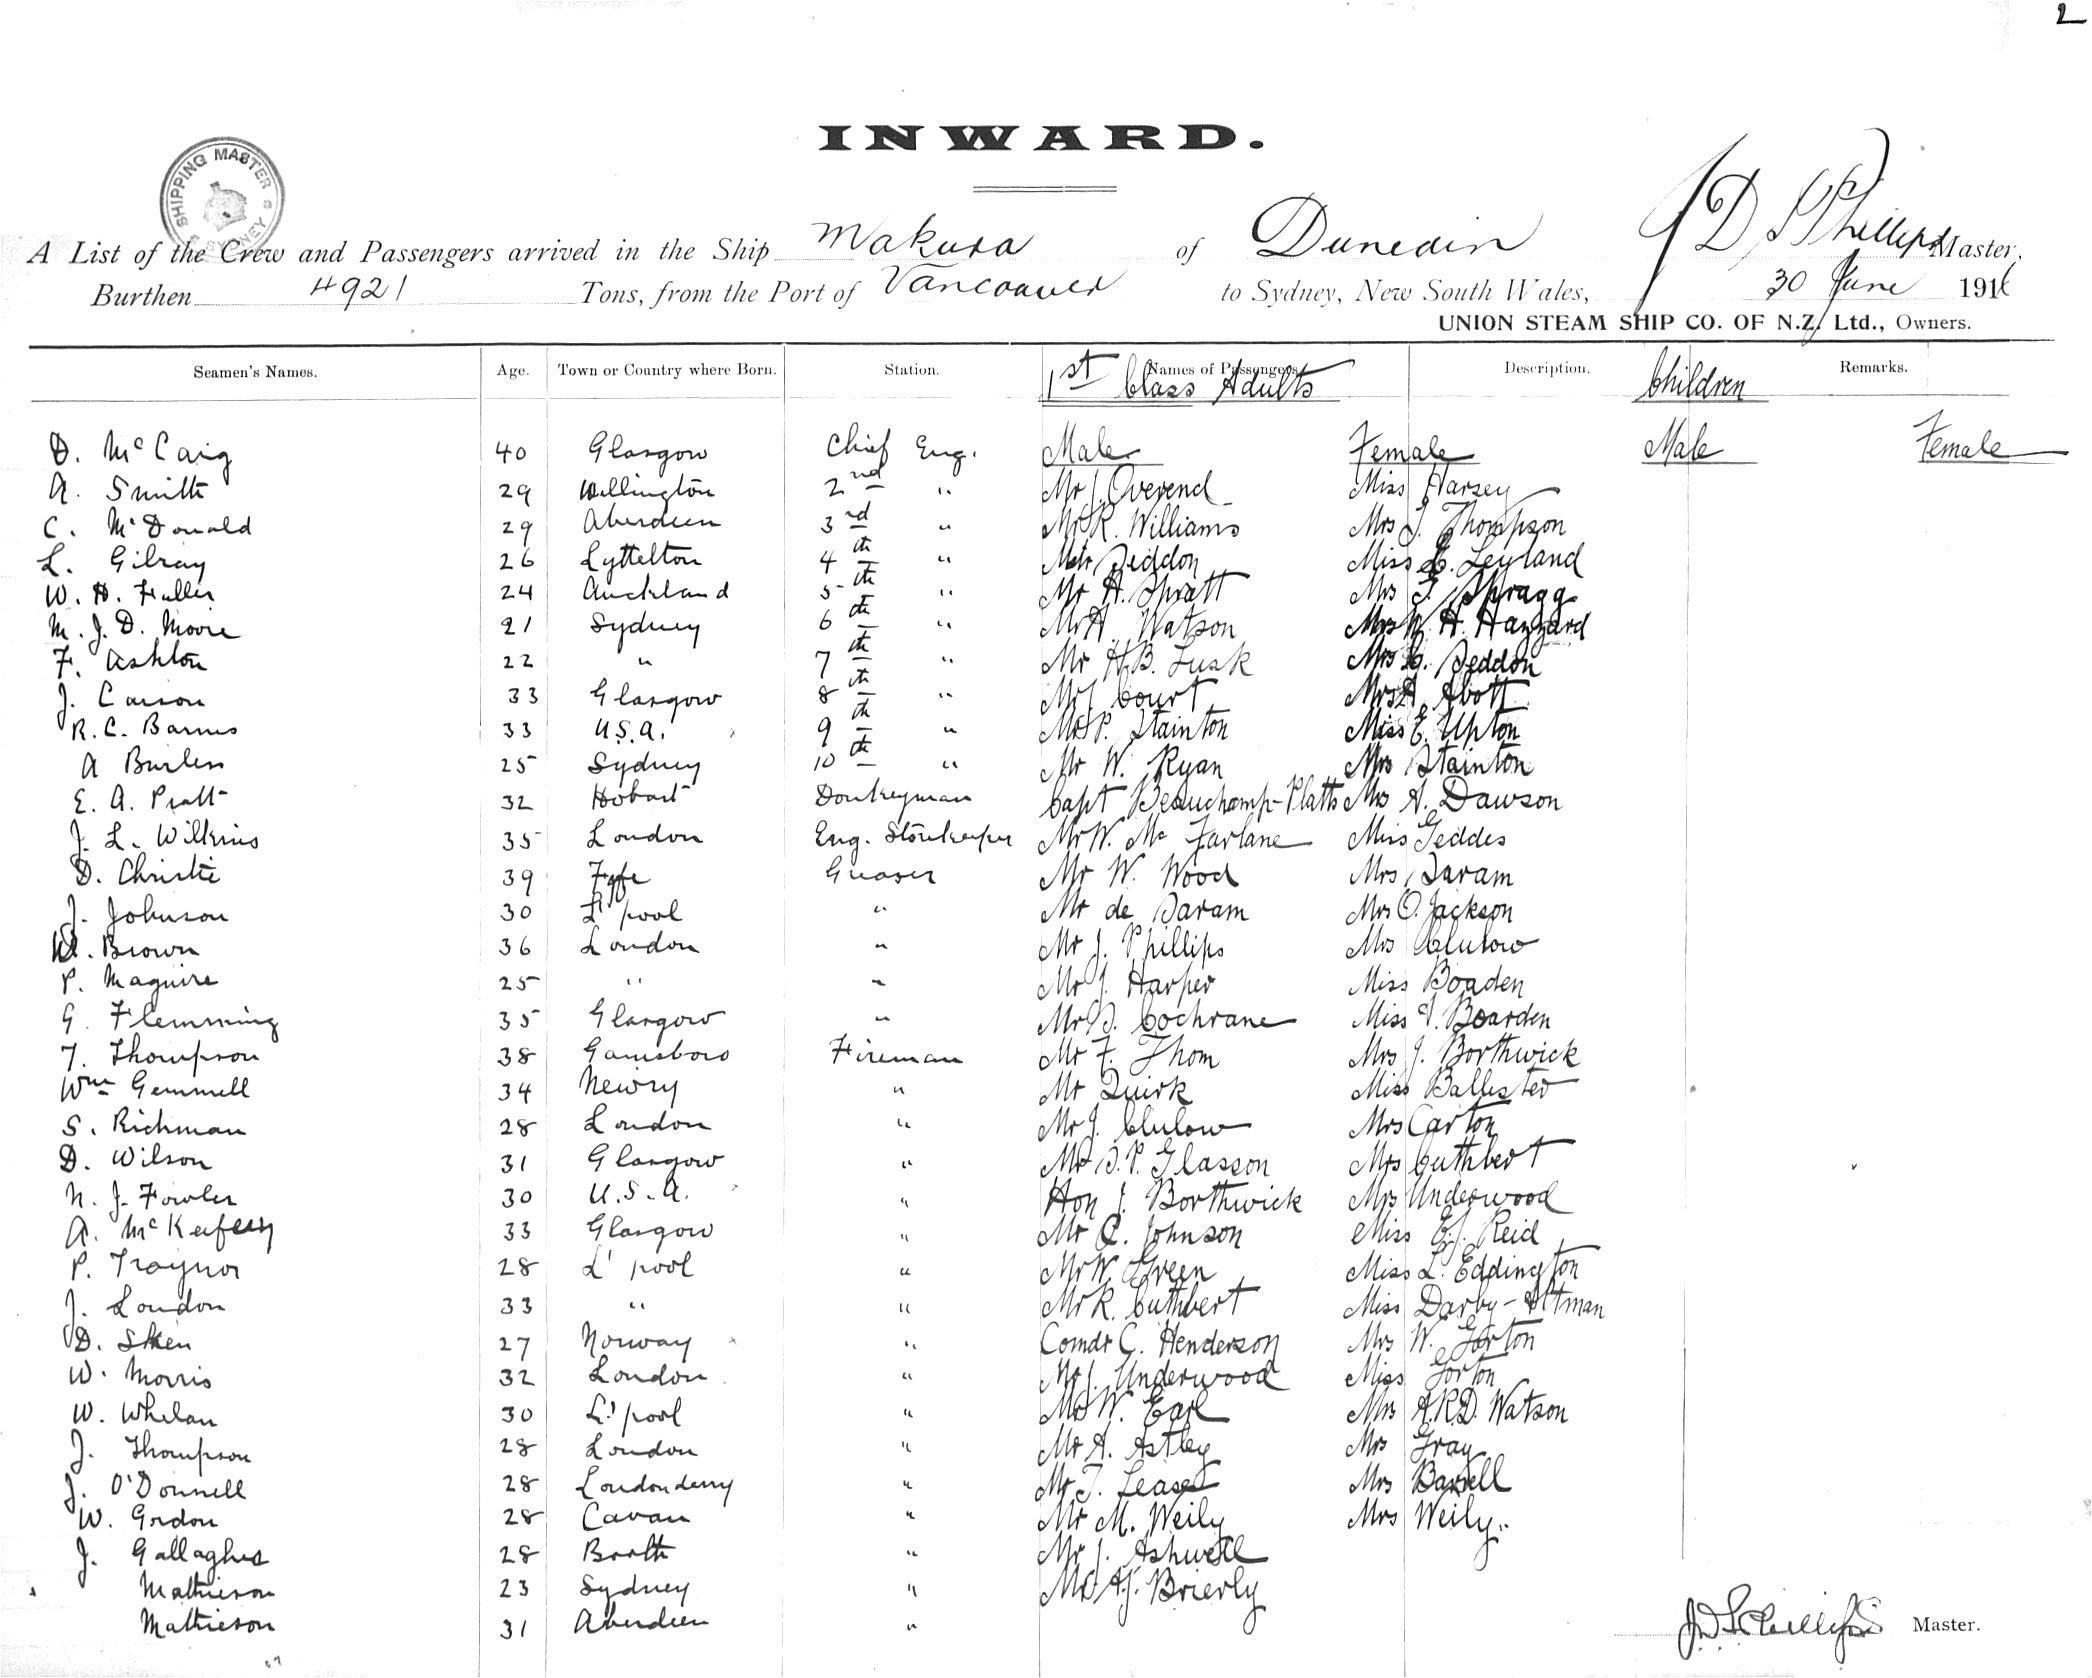 2
INWARD.
SHIPPING MASTER
SYDNEY
A List of the Crew and Passengers arrived in the Ship Makura of Dunedin J D S Phillips Master,
Burthen 4921 Tons, from the Port of Vancouver to Sydney, New South Wales, 30 June 1916
UNION STEAM SHIP CO. OF N.Z. Ltd., Owners.
Seamen's Names. Age. Town or Country where Born. Station. Names of Passengers Description. Remarks.
1st Class Adults Children
D. McCaig 40 Glasgow Chief Eng. Male Female Male Female
A. Smith 29 Wellington 2nd " Mr J. Overend Miss Harsey
C. McDonald 29 Aberdeen 3rd " Mr R. Williams Mrs J. Thompson
L. Gilray 26 Lyttelton 4th " Mr Seddon Miss E. Leyland
W. H. Fuller 24 Auckland 5th " Mr H. Spratt Mrs Spragg
M. J. D. Moore 21 Sydney 6th " Mr A. Watson Mrs W. H. Hazzard
F. Ashton 22 " 7th " Mr H.B. Lusk Mrs Seddon
J. Carson 33 Glasgow 8th " Mr J. Court Mrs A. Abott
R. C. Barnes 33 U.S.A. 9th " Mr P. Stainton Miss E. Upton
A Burless 25 Sydney 10th " Mr W. Ryan Mrs Stainton
E. A. Pratt 32 Hobart Donkeyman Capt Beauchamp-Platts Mrs A. Dawson
J. L. Wilkins 35 London Eng. Storekeeper Mr W. Mc Farlane Miss Geddes
D. Christie 39 Fyfe Greaser Mr W. Wood Mrs Saram
J. Johnson 30 L'pool " Mr de Saram Mrs O. Jackson
W. Brown 36 London " Mr J. Phillips Mrs Clulow
P. Maguire 25 " " Mr J. Harper Miss Boaden
G. Flemming 35 Glasgow " Mr D. Cochrane Miss V. Boarden
T. Thompson 38 Gainsboro Fireman Mr F. Thom Mrs J. Borthwick
Wm Gemmell 34 Newry " Mr Quirk Miss Ballister
S. Richman 28 London " Mr J. Clulow Mrs Carton
D. Wilson 31 Glasgow " Mr D. P. Glasson Mrs Cuthbert
N. J. Fowler 30 U.S.A. " Hon J. Borthwick Mrs Underwood
A. McKeifery 33 Glasgow " Mr C. Johnson Miss E.J. Reid
P. Traynor 28 L'pool " Mr W. Green Miss L. Eddington
J. London 33 " " Mr R. Cuthbert Miss Darby-Altman
D. Sken 27 Norway " Comdr C. Henderson Mrs W. Gorton
W. Morris 32 London " Mr J. Underwood Miss Gorton
W. Whelan 30 L'pool " Mr W. Earl Mrs A.R.D. Watson
J. Thompson 28 London " Mr A. Astley Mrs Gray
J. O'Donnell 28 Londonderry " Mr T. Mrs Barrell
W. Gordon 28 Cavan " Mr M. Weily Mrs Weily.
J. Gallagher 28 Bootle " Mr J. Ashwell
Mathieson 23 Sydney " Mr A.J. Brierly
Mathieson 31 Aberdeen "
J D S Phillips Master.